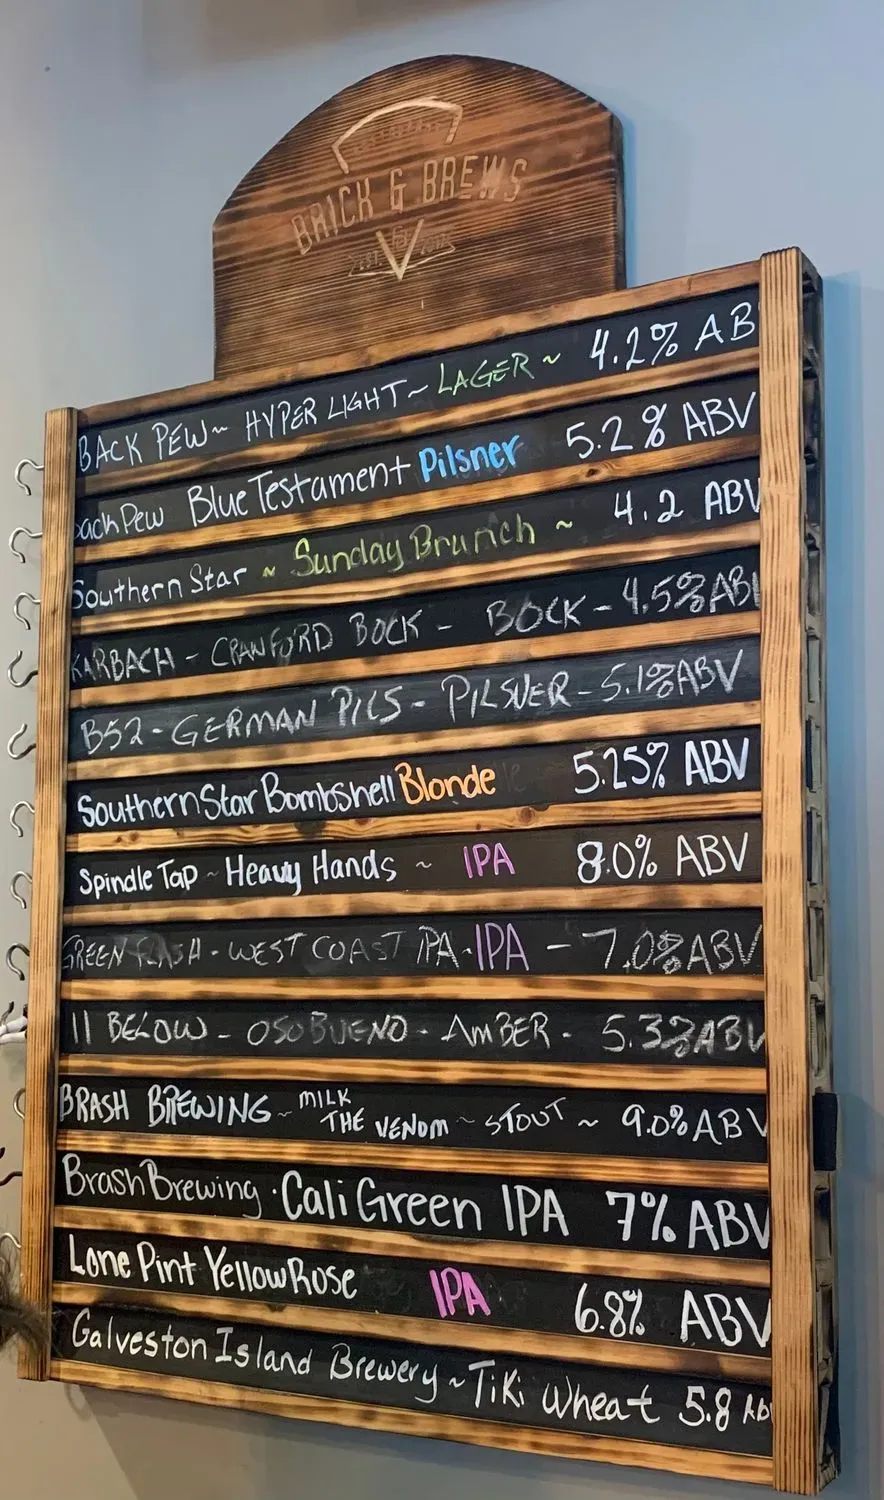 BRICK & BREWS
EST. 2012
BACK PEW ~ HYPER LIGHT ~ LAGER ~ 4.2% AB
Back Pew Blue Testament Pilsner 5.2% ABV
Southern Star ~ Sunday Brunch ~ 4.2 ABV
KARBACH - CRAWFORD BOCK - BOCK - 4.5% ABV
B52 - GERMAN PILS - PILSNER - 5.1% ABV
Southern Star Bombshell Blonde 5.25% ABV
Spindle Tap ~ Heavy Hands ~ IPA 8.0% ABV
GREEN FLASH - WEST COAST IPA - IPA - 7.0% ABV
11 BELOW - OSO BUENO - AMBER - 5.3% ABV
BRASH BREWING ~ MILK THE VENOM ~ STOUT ~ 9.0% ABV
Brash Brewing · Cali Green IPA 7% ABV
Lone Pint Yellow Rose IPA 6.8% ABV
Galveston Island Brewery ~ Tiki Wheat 5.8 Ab